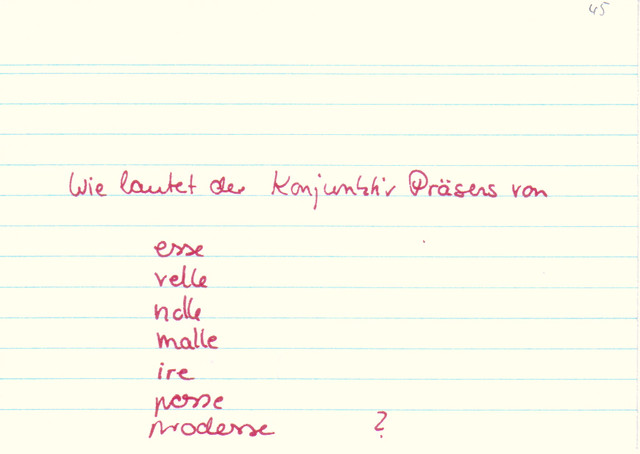 45
Wie lautet der Konjunktiv Präsens von
esse
velle
nolle
malle
ire
posse
prodesse ?